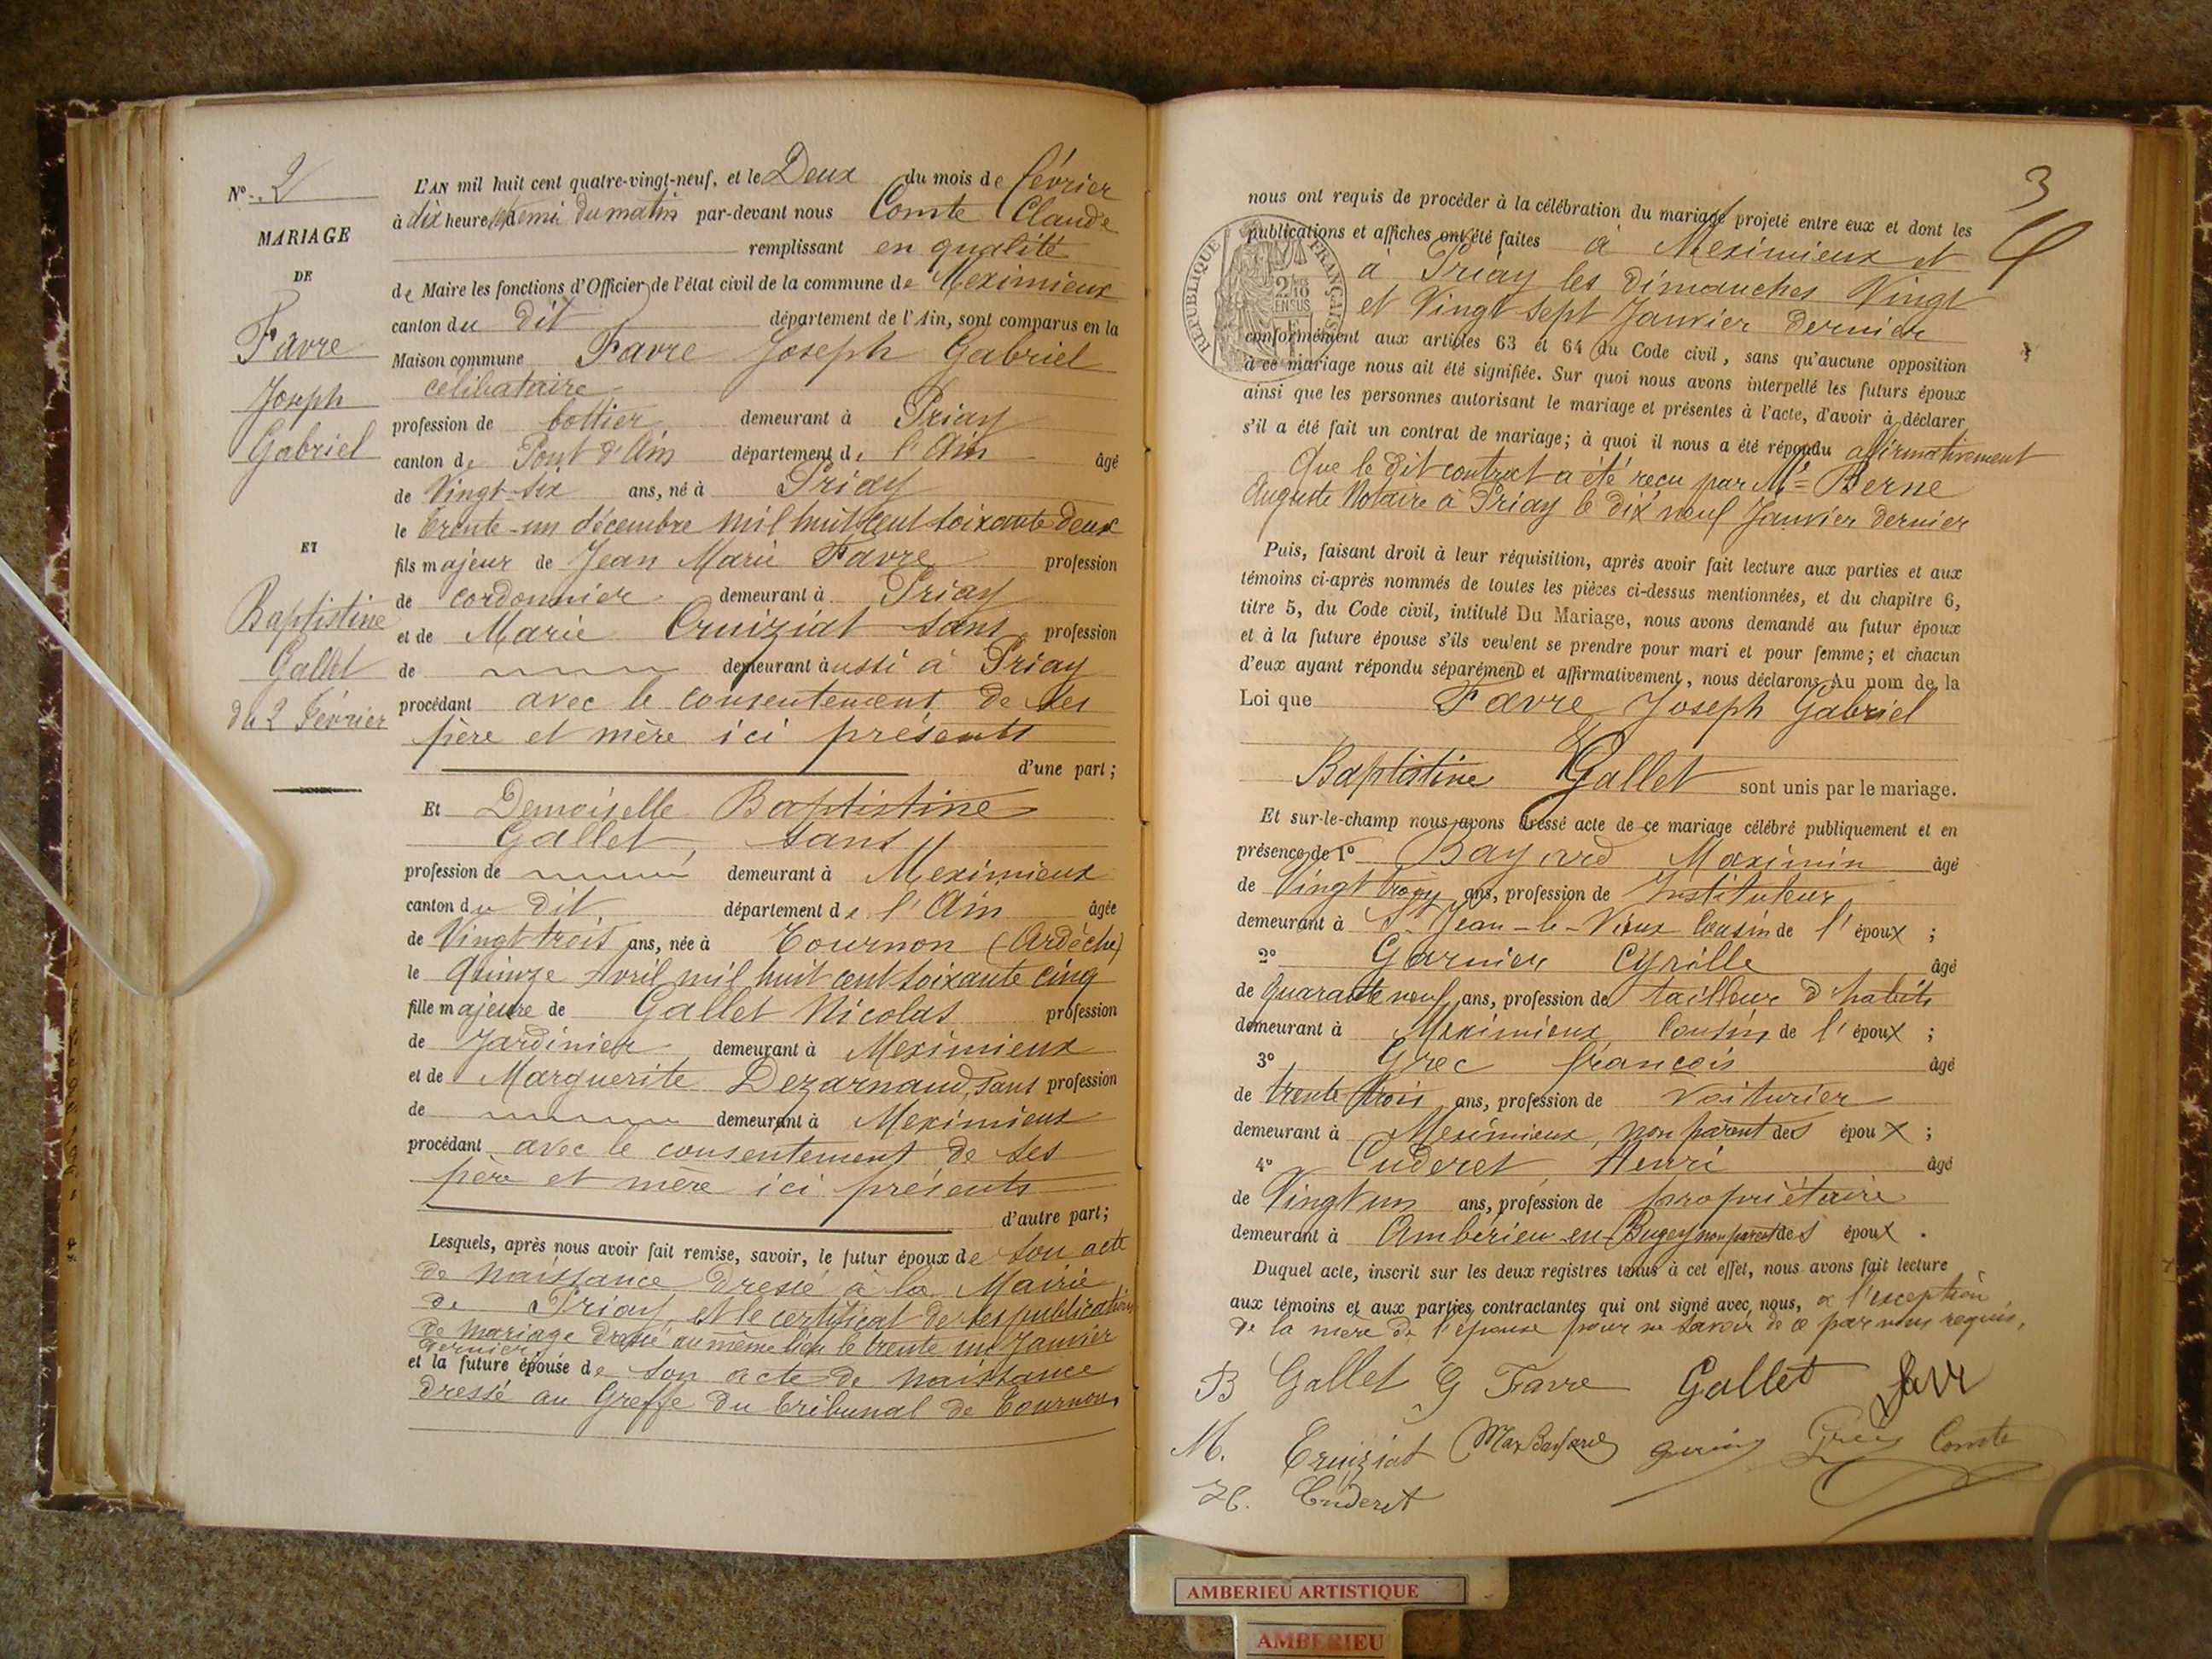 N° 2
MARIAGE
DE
Favre
Joseph
Gabriel
ET
Baptistine
Gallet
du 2 Février
L'AN mil huit cent quatre-vingt-neuf, et le Deux du mois de février
à dix heures & demi du matin par-devant nous Comte Claude
remplissant en qualité
de Maire les fonctions d'Officier de l'état civil de la commune de Meximieux
canton du dit département de l'Ain, sont comparus en la
Maison commune Favre Joseph Gabriel
célibataire
profession de bottier demeurant à Priay
canton de Pont d'Ain département de l'Ain âgé
de Vingt-six ans, né à Priay
le trente-un décembre mil huit cent soixante deux
fils majeur de Jean Marie Favre profession
de cordonnier demeurant à Priay
et de Marie Cruiziat sans profession
de demeurant aussi à Priay
procédant avec le consentement de ses
père et mère ici présents
d'une part;
Et Demoiselle Baptistine
Gallet, sans
profession de demeurant à Meximieux
canton du dit département de l'Ain âgée
de Vingt trois ans, née à Tournon (Ardèche)
le Quinze Avril mil huit cent soixante cinq
fille majeure de Gallet Nicolas profession
de Jardinier demeurant à Meximieux
et de Marguerite Dezarnaud, sans profession
de demeurant à Meximieux
procédant avec le consentement de ses
père et mère ici présents
d'autre part;
Lesquels, après nous avoir fait remise, savoir, le futur époux de son acte
de naissance dressé à la Mairie
de Priay, et le certificat de ses publications
de mariage dressé au même lieu le trente un Janvier
dernier
et la future épouse de son acte de naissance
dressé au Greffe du tribunal de Tournon,
3
nous ont requis de procéder à la célébration du mariage projeté entre eux et dont les
publications et affiches ont été faites à Meximieux et
à Priay les dimanches Vingt
et Vingt sept Janvier dernier
RÉPUBLIQUE FRANÇAISE
conformément aux articles 63 et 64 du Code civil, sans qu'aucune opposition
à ce mariage nous ait été signifiée. Sur quoi nous avons interpellé les futurs époux
ainsi que les personnes autorisant le mariage et présentes à l'acte, d'avoir à déclarer
s'il a été fait un contrat de mariage; à quoi il nous a été répondu affirmativement
Que le dit contrat a été reçu par Me Berne
Auguste Notaire à Priay le dix neuf Janvier dernier
Puis, faisant droit à leur réquisition, après avoir fait lecture aux parties et aux
témoins ci-après nommés de toutes les pièces ci-dessus mentionnées, et du chapitre 6,
titre 5, du Code civil, intitulé Du Mariage, nous avons demandé au futur époux
et à la future épouse s'ils veulent se prendre pour mari et pour femme; et chacun
d'eux ayant répondu séparément et affirmativement, nous déclarons Au nom de la
Loi que Favre Joseph Gabriel
&
Baptistine Gallet sont unis par le mariage.
Et sur-le-champ nous avons dressé acte de ce mariage célébré publiquement et en
présence de 1° Bayard Maximin âgé
de Vingt trois ans, profession de Instituteur
demeurant à St Jean-le-Vieux Cousin de l'époux ;
2° Garnier Cyrille âgé
de quarante neuf ans, profession de tailleur d'habits
demeurant à Meximieux Cousin de l'époux ;
3° Grec françois âgé
de trente trois ans, profession de voiturier
demeurant à Meximieux, non parent des époux ;
4° Cuderet Henri âgé
de Vingt un ans, profession de propriétaire
demeurant à Ambérieu-en-Bugey non parent des époux .
Duquel acte, inscrit sur les deux registres tenus à cet effet, nous avons fait lecture
aux témoins et aux parties contractantes qui ont signé avec nous, a l'exception
de la mère de l'épouse pour ne savoir de ce par nous requis,
B Gallet G Favre Gallet Favr
M. Cruiziat Max Bayard Grec Comte
H. Cuderet
AMBERIEU ARTISTIQUE
AMBERIEU